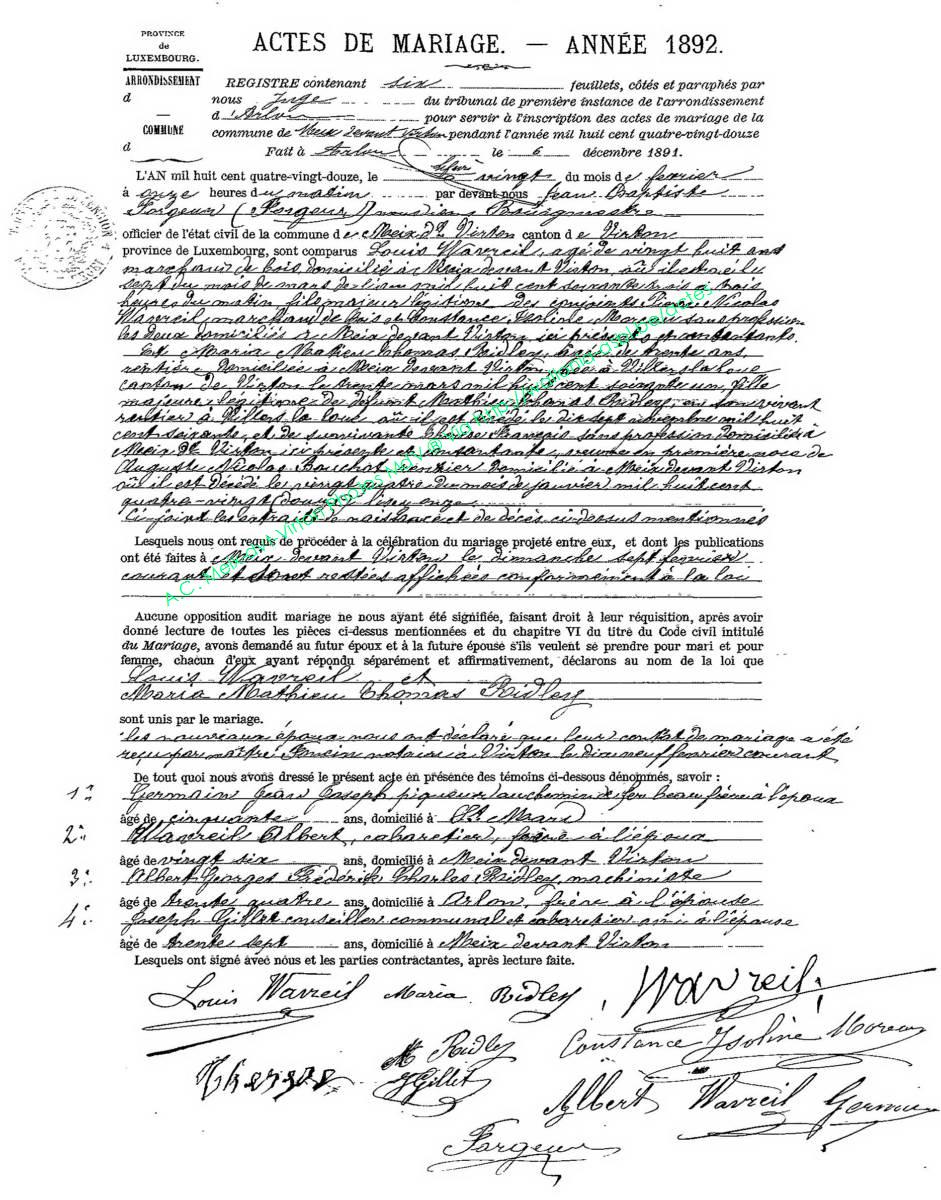 PROVINCE
de
LUXEMBOURG.
ARRONDISSEMENT
d
COMMUNE
d
ACTES DE MARIAGE. — ANNÉE 1892.
REGISTRE contenant six feuillets, côtés et paraphés par
nous Juge du tribunal de première instance de l'arrondissement
d'Arlon pour servir à l'inscription des actes de mariage de la
commune de Meix devant Virton pendant l'année mil huit cent quatre-vingt-douze
Fait à Arlon le 6 décembre 1891.
L'AN mil huit cent quatre-vingt-douze, le vingt du mois de fevrier
à onze heures du matin par devant nous Jean Baptiste
Forgeur (Forgeur) Bourgmestre
officier de l'état civil de la commune de Meix dt Virton canton de Virton
province de Luxembourg, sont comparus Louis Wavreil, agé de vingt huit ans
marchand de bois domicilié à Meix devant Virton, où il est né le
sept du mois de mars de l'an mil huit cent soixante trois à trois
heures du matin fils majeur légitime des époux Nicolas
Wavreil, marchand de bois et Constance Isoline Moreau sans profession
les deux domiciliés à Meix devant Virton ici présents et consentants.
Et Maria Mathieu Thomas Ridley, agée de trente ans,
rentière domiciliée à Meix devant Virton, née à Villers la loue
canton de Virton le trente mars mil huit cent soixante un, fille
majeure légitime de défunt Mathieu Thomas Ridley, en son vivant
rentier à Villers la loue où il est décédé le dix sept mil huit
cent soixante, et de survivante Thérèse François sans profession domiciliée à
Meix dt Virton ici présente et consentante, veuve en première noce de
Auguste Nicolas Bouchat rentier domicilié à Meix devant Virton
où il est décédé le vingt quatre du mois de janvier mil huit cent
quatre-vingt
Ci-joint les extraits de naissance et de décès ci-dessus mentionnés
Lesquels nous ont requis de procéder à la célébration du mariage projeté entre eux, et dont les publications
ont été faites à Meix devant Virton le dimanche sept fevrier
courant et sont restées affichées conformément à la loi
Aucune opposition audit mariage ne nous ayant été signifiée, faisant droit à leur réquisition, après avoir
donné lecture de toutes les pièces ci-dessus mentionnées et du chapitre VI du titre du Code civil intitulé
du Mariage, avons demandé au futur époux et à la future épouse s'ils veulent se prendre pour mari et pour
femme, chacun d'eux ayant répondu séparément et affirmativement, déclarons au nom de la loi que
Louis Wavreil et
Maria Mathieu Thomas Ridley
sont unis par le mariage.
les nouveaux époux nous ont déclaré que leur contrat de mariage a été
reçu par maître notaire à Virton le dix neuf fevrier courant
De tout quoi nous avons dressé le présent acte en présence des témoins ci-dessous dénommés, savoir :
1° Germain Jean Joseph piqueur au chemin de fer beau frère à l'époux
âgé de cinquante ans, domicilié à St Mard
2° Wavreil Albert, cabaretier, frère à l'époux
âgé de vingt six ans, domicilié à Meix devant Virton
3° Albert Georges Frédérik Charles Ridley, machiniste
âgé de trente quatre ans, domicilié à Arlon, frère à l'épouse
4° Joseph Gillet conseiller communal et cabaretier ami à l'épouse
âgé de trente sept ans, domicilié à Meix devant Virton
Lesquels ont signé avec nous et les parties contractantes, après lecture faite.
Louis Wavreil Maria Ridley Wavreil
Ridley Constance Isoline Moreau
Therese JGillet
Albert Wavreil Germain
Forgeur